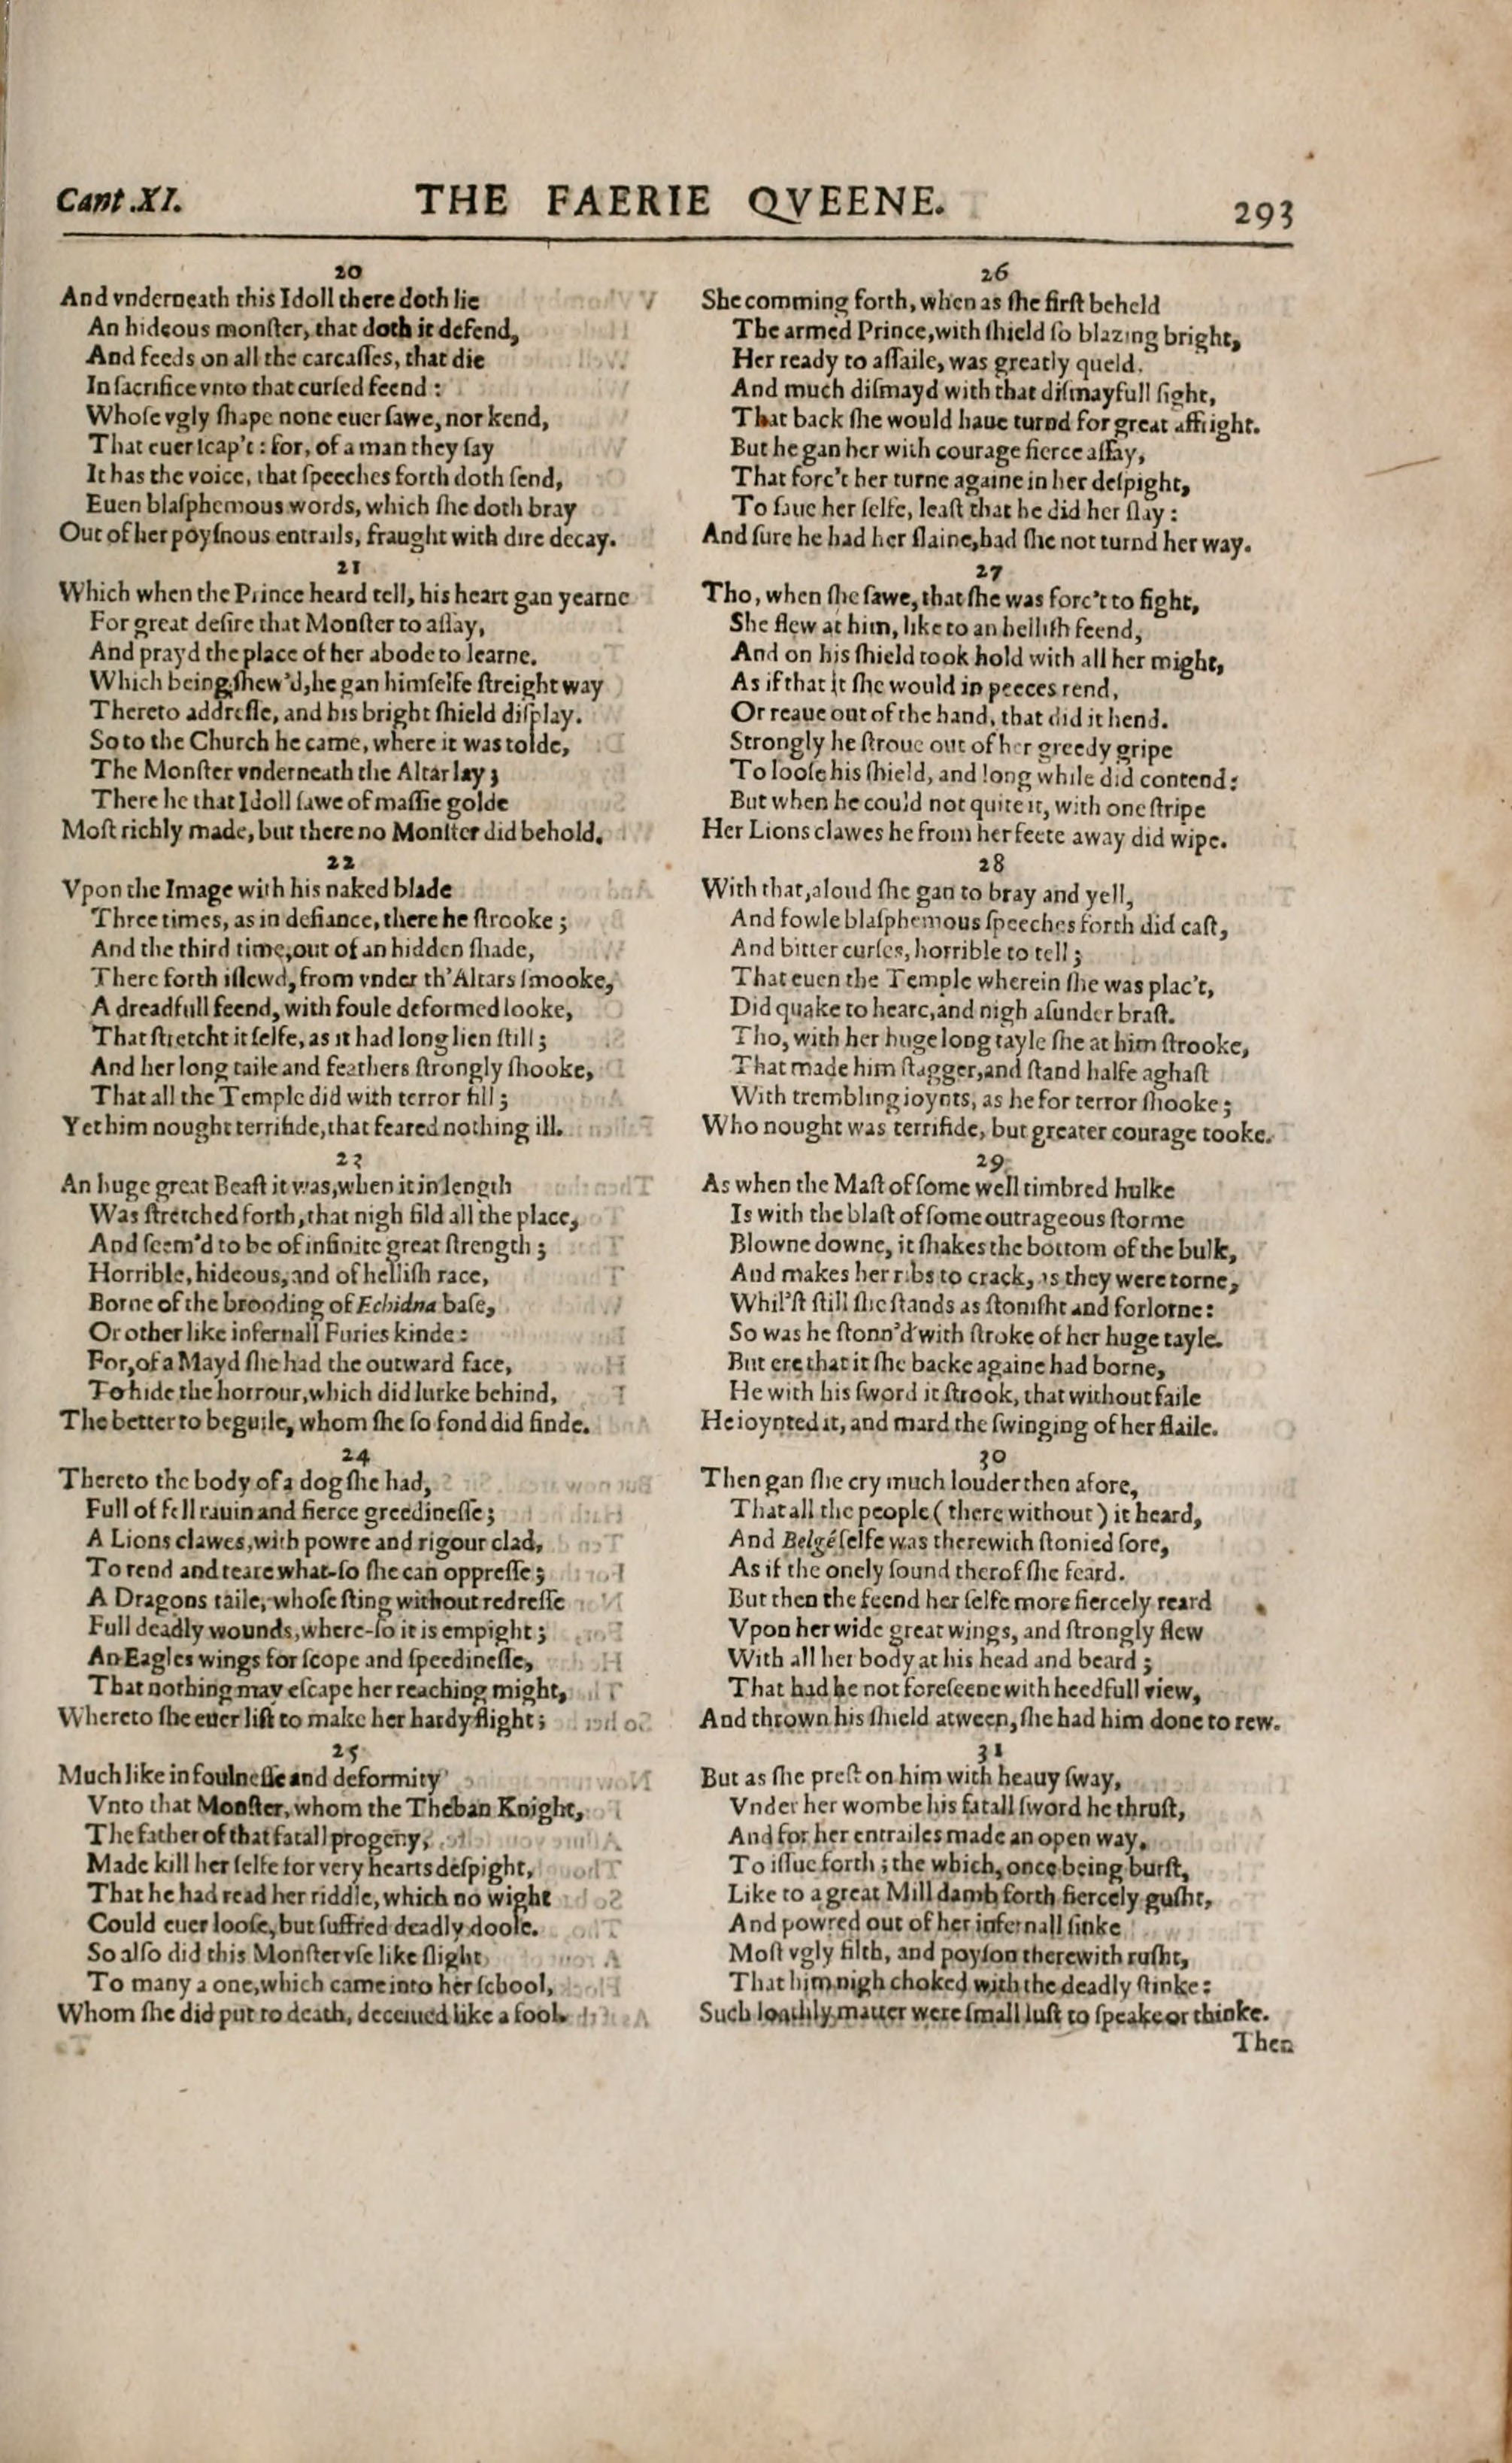 Cant.XI.
THE FAERIE QVEENE.
293
20
And vnderneath this Idoll there doth lie
An hideous monſter, that doth it defend,
And feeds on all the carcaſſes, that die
In ſacrifice vnto that curſed feend :
Whoſe vgly ſhape none euer ſawe, nor kend,
That euer ſcap't : for, of a man they ſay
It has the voice, that ſpeeches forth doth ſend,
Euen blaſphemous words, which ſhe doth bray
Out of her poyſnous entrails, fraught with dire decay.
21
Which when the Prince heard tell, his heart gan yearne
For great deſire that Monſter to aſſay,
And prayd the place of her abode to learne.
Which being ſhew'd, he gan himſelfe ſtreight way
Thereto addreſſe, and his bright ſhield diſplay.
So to the Church he came, where it was tolde,
The Monſter vnderneath the Altar lay ;
There he that Idoll ſawe of maſſie golde
Moſt richly made, but there no Monſter did behold.
22
Vpon the Image with his naked blade
Three times, as in defiance, there he ſtrooke ;
And the third time, out of an hidden ſhade,
There forth iſſewd, from vnder th'Altars ſmooke,
A dreadfull feend, with foule deformed looke,
That ſtretcht it ſelfe, as it had long lien ſtill ;
And her long taile and feathers ſtrongly ſhooke,
That all the Temple did with terror fill ;
Yet him nought terrifide, that feared nothing ill.
23
An huge great Beaſt it was, when it in length
Was ſtretched forth, that nigh fild all the place,
And ſeem'd to be of infinite great ſtrength ;
Horrible, hideous, and of helliſh race,
Borne of the brooding of Echidna baſe,
Or other like infernall Furies kinde :
For, of a Mayd ſhe had the outward face,
To hide the horrour, which did lurke behind,
The better to beguile, whom ſhe ſo fond did finde.
24
Thereto the body of a dog ſhe had,
Full of fell rauin and fierce greedineſſe ;
A Lions clawes, with powre and rigour clad,
To rend and teare what-ſo ſhe can oppreſſe ;
A Dragons taile, whoſe ſting without redreſſe
Full deadly wounds, where-ſo it is empight ;
An Eagles wings for ſcope and ſpeedineſſe,
That nothing may eſcape her reaching might,
Whereto ſhe euer liſt to make her hardy flight ;
25
Much like in foulneſſe and deformity
Vnto that Monſter, whom the Theban Knight,
The father of that fatall progeny,
Made kill her ſelfe for very hearts deſpight,
That he had read her riddle, which no wight
Could euer looſe, but ſuffred deadly doole.
So alſo did this Monſter vſe like ſlight
To many a one, which came into her ſchool,
Whom ſhe did put to death, deceiued like a fool.
26
She comming forth, when as ſhe firſt beheld
The armed Prince, with ſhield ſo blazing bright,
Her ready to aſſaile, was greatly queld.
And much diſmayd with that diſmayfull ſight,
That back ſhe would haue turnd for great affright.
But he gan her with courage fierce aſſay,
That forc't her turne againe in her deſpight,
To ſaue her ſelfe, leaſt that he did her ſlay :
And ſure he had her ſlaine, had ſhe not turnd her way.
27
Tho, when ſhe ſawe, that ſhe was forc't to fight,
She flew at him, like to an helliſh feend,
And on his ſhield took hold with all her might,
As if that it ſhe would in peeces rend,
Or reaue out of the hand, that did it hend.
Strongly he ſtroue out of her greedy gripe
To looſe his ſhield, and long while did contend :
But when he could not quite it, with one ſtripe
Her Lions clawes he from her feete away did wipe.
28
With that, aloud ſhe gan to bray and yell,
And fowle blaſphemous ſpeeches forth did caſt,
And bitter curſes, horrible to tell ;
That euen the Temple wherein ſhe was plac't,
Did quake to heare, and nigh aſunder braſt.
Tho, with her huge long tayle ſhe at him ſtrooke,
That made him ſtagger, and ſtand halfe aghaſt
With trembling ioynts, as he for terror ſhooke ;
Who nought was terrifide, but greater courage tooke.
29
As when the Maſt of ſome well timbred hulke
Is with the blaſt of ſome outrageous ſtorme
Blowne downe, it ſhakes the bottom of the bulk,
And makes her ribs to crack, as they were torne,
Whil'ſt ſtill ſhe ſtands as ſtoniſht and forlorne :
So was he ſtonn'd with ſtroke of her huge tayle.
But ere that it ſhe backe againe had borne,
He with his ſword it ſtrook, that without faile
He ioynted it, and mard the ſwinging of her flaile.
30
Then gan ſhe cry much louder then afore,
That all the people ( there without ) it heard,
And Belgé ſelfe was therewith ſtonied ſore,
As if the onely ſound therof ſhe feard.
But then the feend her ſelfe more fiercely reard
Vpon her wide great wings, and ſtrongly flew
With all her body at his head and beard ;
That had he not foreſeene with heedfull view,
And thrown his ſhield atween, ſhe had him done to rew.
31
But as ſhe preſt on him with heauy ſway,
Vnder her wombe his fatall ſword he thruſt,
And for her entrailes made an open way,
To iſſue forth ; the which, once being burſt,
Like to a great Mill damb forth fiercely guſht,
And powred out of her infernall ſinke
Moſt vgly filth, and poyſon therewith ruſht,
That him nigh choked with the deadly ſtinke :
Such loathly matter were ſmall luſt to ſpeake or thinke.
Then